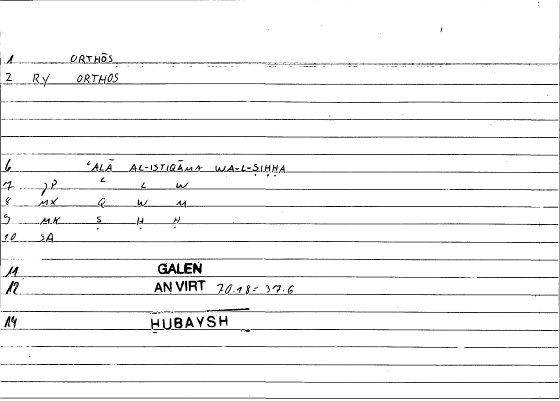 1 ORTHŌS
2 RY ORTHOS
6 ʿALĀ AL-ISTIQĀMA WA-L-ṢIḤḤA
7 JP ʿ L W
8 MX Q W M
9 MK Ṣ Ḥ Ḥ
10 SA
11 GALEN
12 AN VIRT 70.18 = 37.6
14 ḤUBAYSH